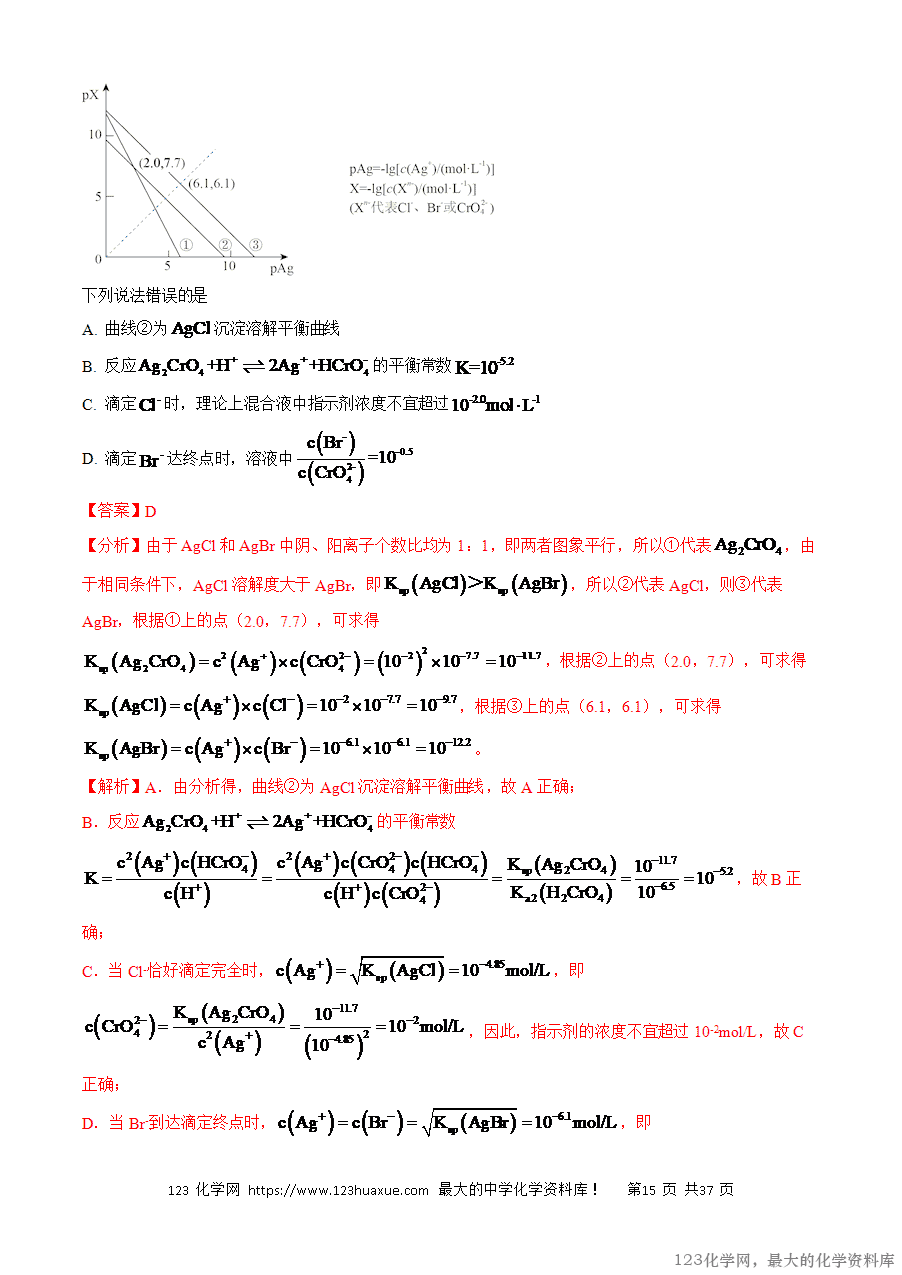 pX
10
(2.0,7.7)
(6.1,6.1)
pAg=-lg[c(Ag⁺)/(mol·L⁻¹)]
X=-lg[c(Xⁿ⁻)/(mol·L⁻¹)]
(Xⁿ⁻代表Cl⁻、Br⁻或CrO₄²⁻)
5
① ② ③
0 5 10 pAg
下列说法错误的是
A. 曲线②为AgCl沉淀溶解平衡曲线
B. 反应Ag₂CrO₄+H⁺⇌2Ag⁺+HCrO₄⁻的平衡常数K=10⁻⁵·²
C. 滴定Cl⁻时，理论上混合液中指示剂浓度不宜超过10⁻²·⁰mol·L⁻¹
D. 滴定Br⁻达终点时，溶液中c(Br⁻)/c(CrO₄²⁻)=10⁻⁰·⁵
【答案】D
【分析】由于 AgCl 和 AgBr 中阴、阳离子个数比均为 1：1，即两者图象平行，所以①代表Ag₂CrO₄，由
于相同条件下，AgCl 溶解度大于 AgBr，即Kₛₚ(AgCl)＞Kₛₚ(AgBr)，所以②代表 AgCl，则③代表
AgBr，根据①上的点（2.0，7.7），可求得
Kₛₚ(Ag₂CrO₄)=c²(Ag⁺)×c(CrO₄²⁻)=(10⁻²)²×10⁻⁷·⁷=10⁻¹¹·⁷，根据②上的点（2.0，7.7），可求得
Kₛₚ(AgCl)=c(Ag⁺)×c(Cl⁻)=10⁻²×10⁻⁷·⁷=10⁻⁹·⁷，根据③上的点（6.1，6.1），可求得
Kₛₚ(AgBr)=c(Ag⁺)×c(Br⁻)=10⁻⁶·¹×10⁻⁶·¹=10⁻¹²·²。
【解析】A．由分析得，曲线②为 AgCl 沉淀溶解平衡曲线，故 A 正确；
B．反应Ag₂CrO₄+H⁺⇌2Ag⁺+HCrO₄⁻的平衡常数
K=c²(Ag⁺)c(HCrO₄⁻)/c(H⁺)=c²(Ag⁺)c(CrO₄²⁻)c(HCrO₄⁻)/c(H⁺)c(CrO₄²⁻)=Kₛₚ(Ag₂CrO₄)/Kₐ₂(H₂CrO₄)=10⁻¹¹·⁷/10⁻⁶·⁵=10⁻⁵·²，故 B 正
确；
C．当 Cl⁻恰好滴定完全时，c(Ag⁺)=√Kₛₚ(AgCl)=10⁻⁴·⁸⁵mol/L，即
c(CrO₄²⁻)=Kₛₚ(Ag₂CrO₄)/c²(Ag⁺)=10⁻¹¹·⁷/(10⁻⁴·⁸⁵)²=10⁻²mol/L，因此，指示剂的浓度不宜超过 10⁻²mol/L，故 C
正确；
D．当 Br⁻到达滴定终点时，c(Ag⁺)=c(Br⁻)=√Kₛₚ(AgBr)=10⁻⁶·¹mol/L，即
123 化学网 https://www.123huaxue.com 最大的中学化学资料库！ 第15 页 共37 页
123化学网，最大的化学资料库